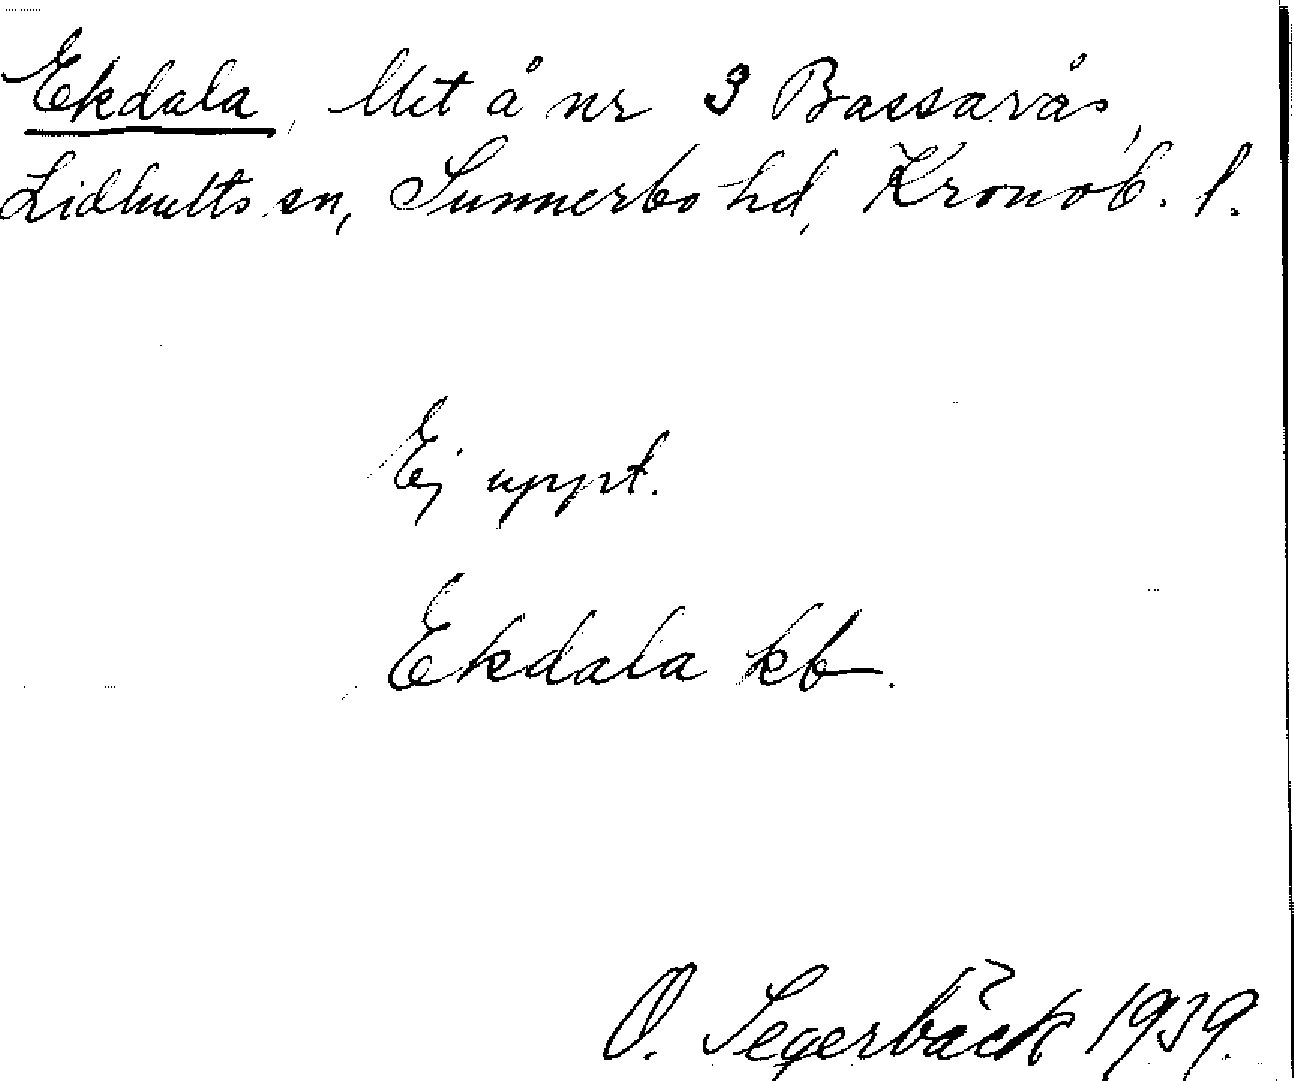 Ekdala, Utet å nr 3 Bassarås,
Lidhults sn, Sunnerbo hd, Kronob. l.
Ej uppt.
Ekdala kb.
O. Segerbäck 1939.